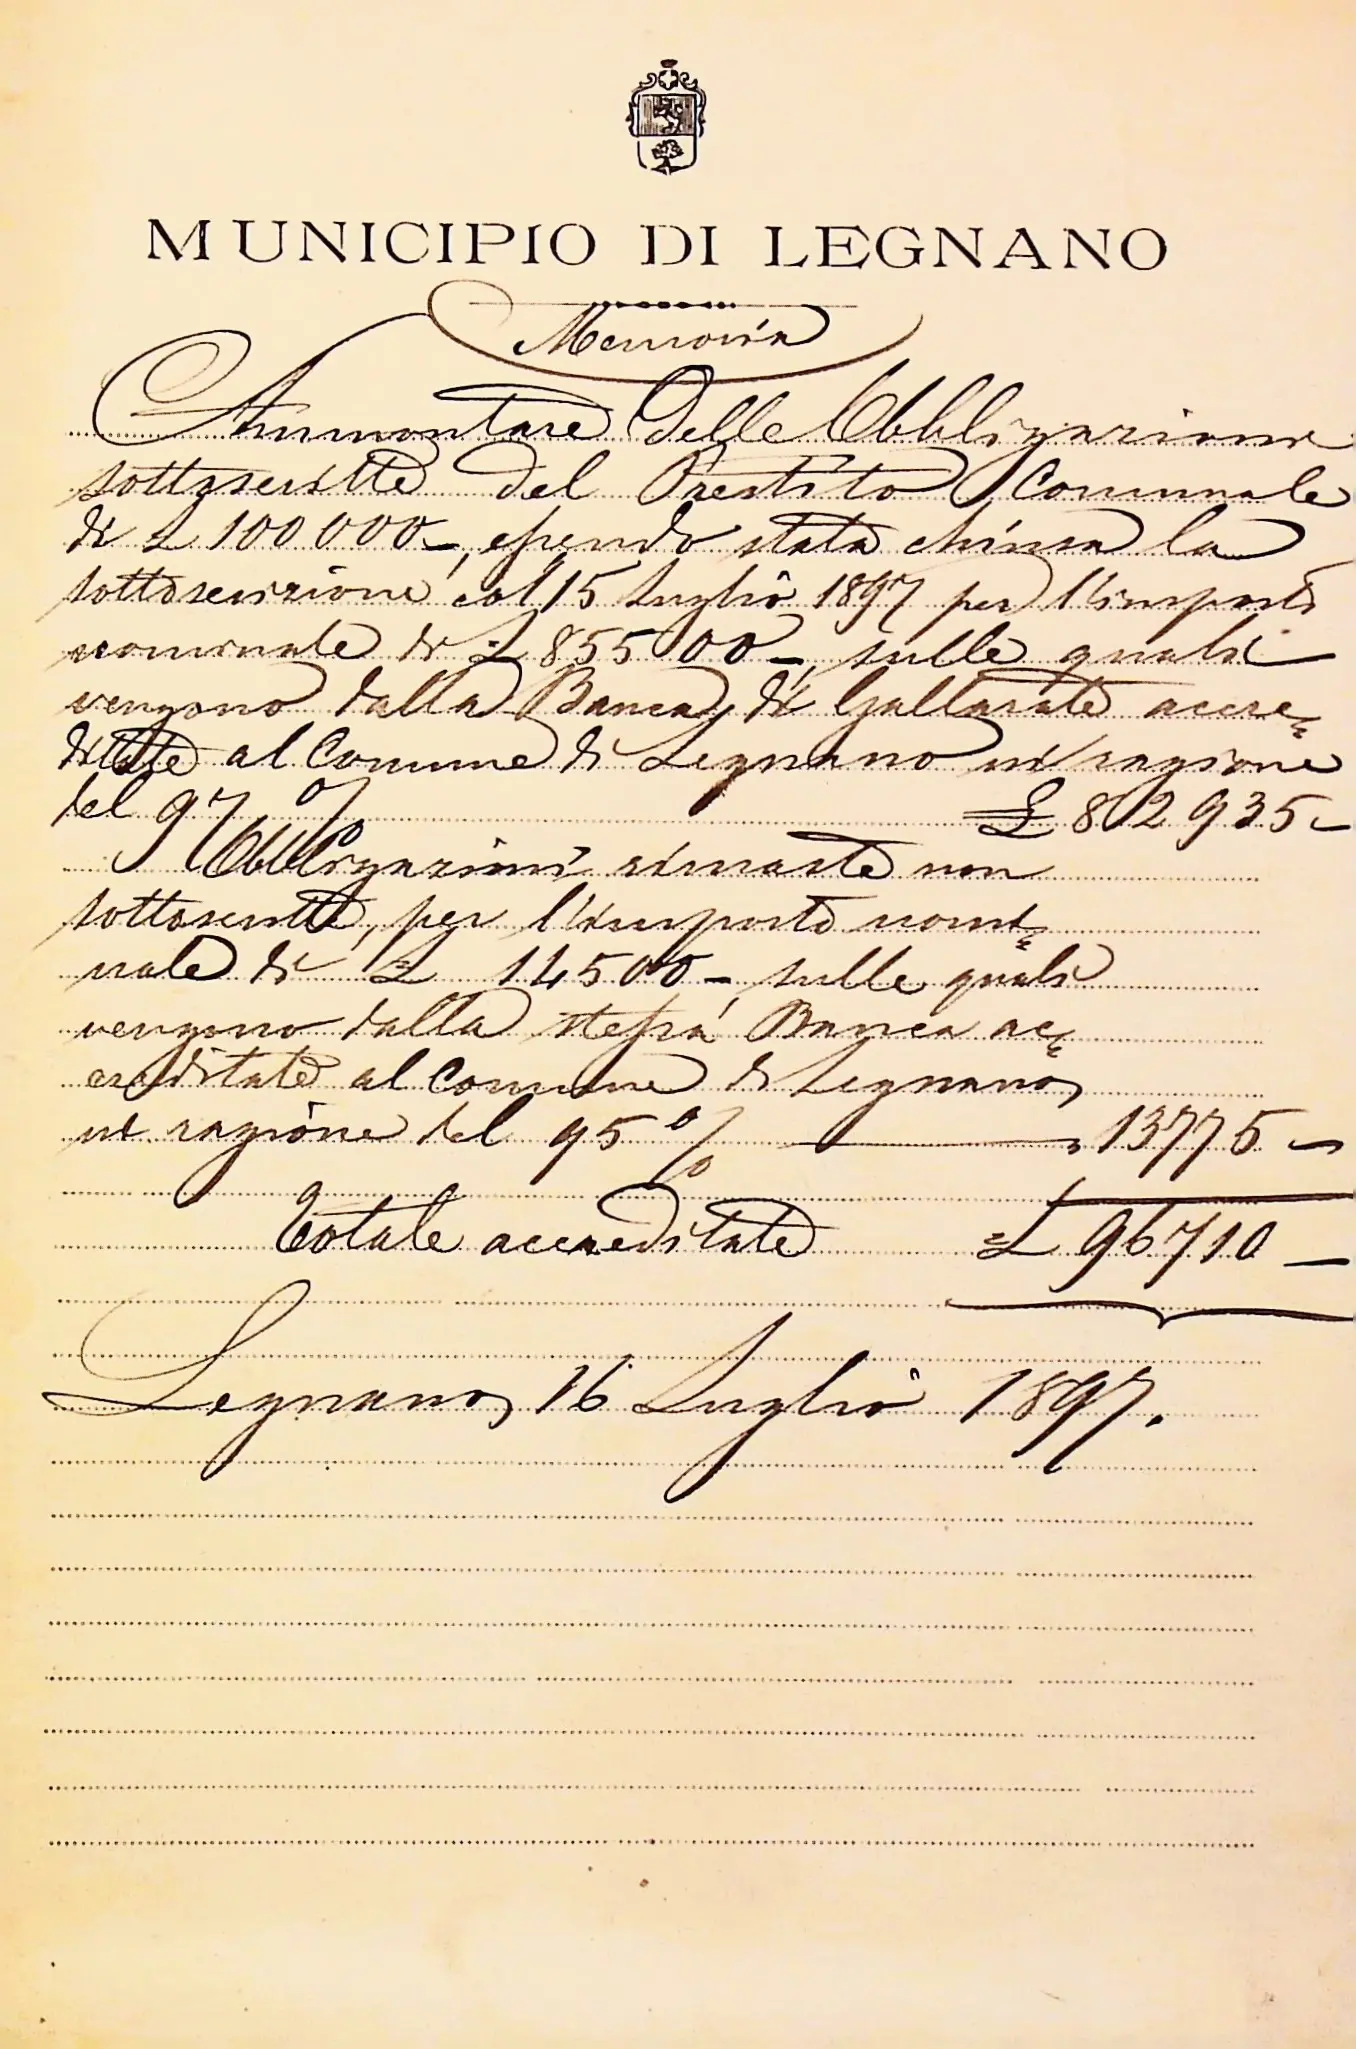 MUNICIPIO DI LEGNANO
Memoria
Ammontare delle Obbligazioni
sottoscritte del Prestito Comunale
di £ 100000-, essendo stata chiusa la
sottoscrizione col 15 Luglio 1897 per l'importo
nominale di £ 85500-, sulle quali
vengono dalla Banca di Gallarate accre=
ditate al Comune di Legnano in ragione
del 97 % £ 82935-
Obbligazioni rimaste non
sottoscritte, per l'importo nomi=
nale di £ 14500-, sulle quali
vengono dalla stessa Banca ac=
creditate al Comune di Legnano,
in ragione del 95 % — " 13775-
Totale accreditate £ 96710-
Legnano, 16 Luglio 1897.